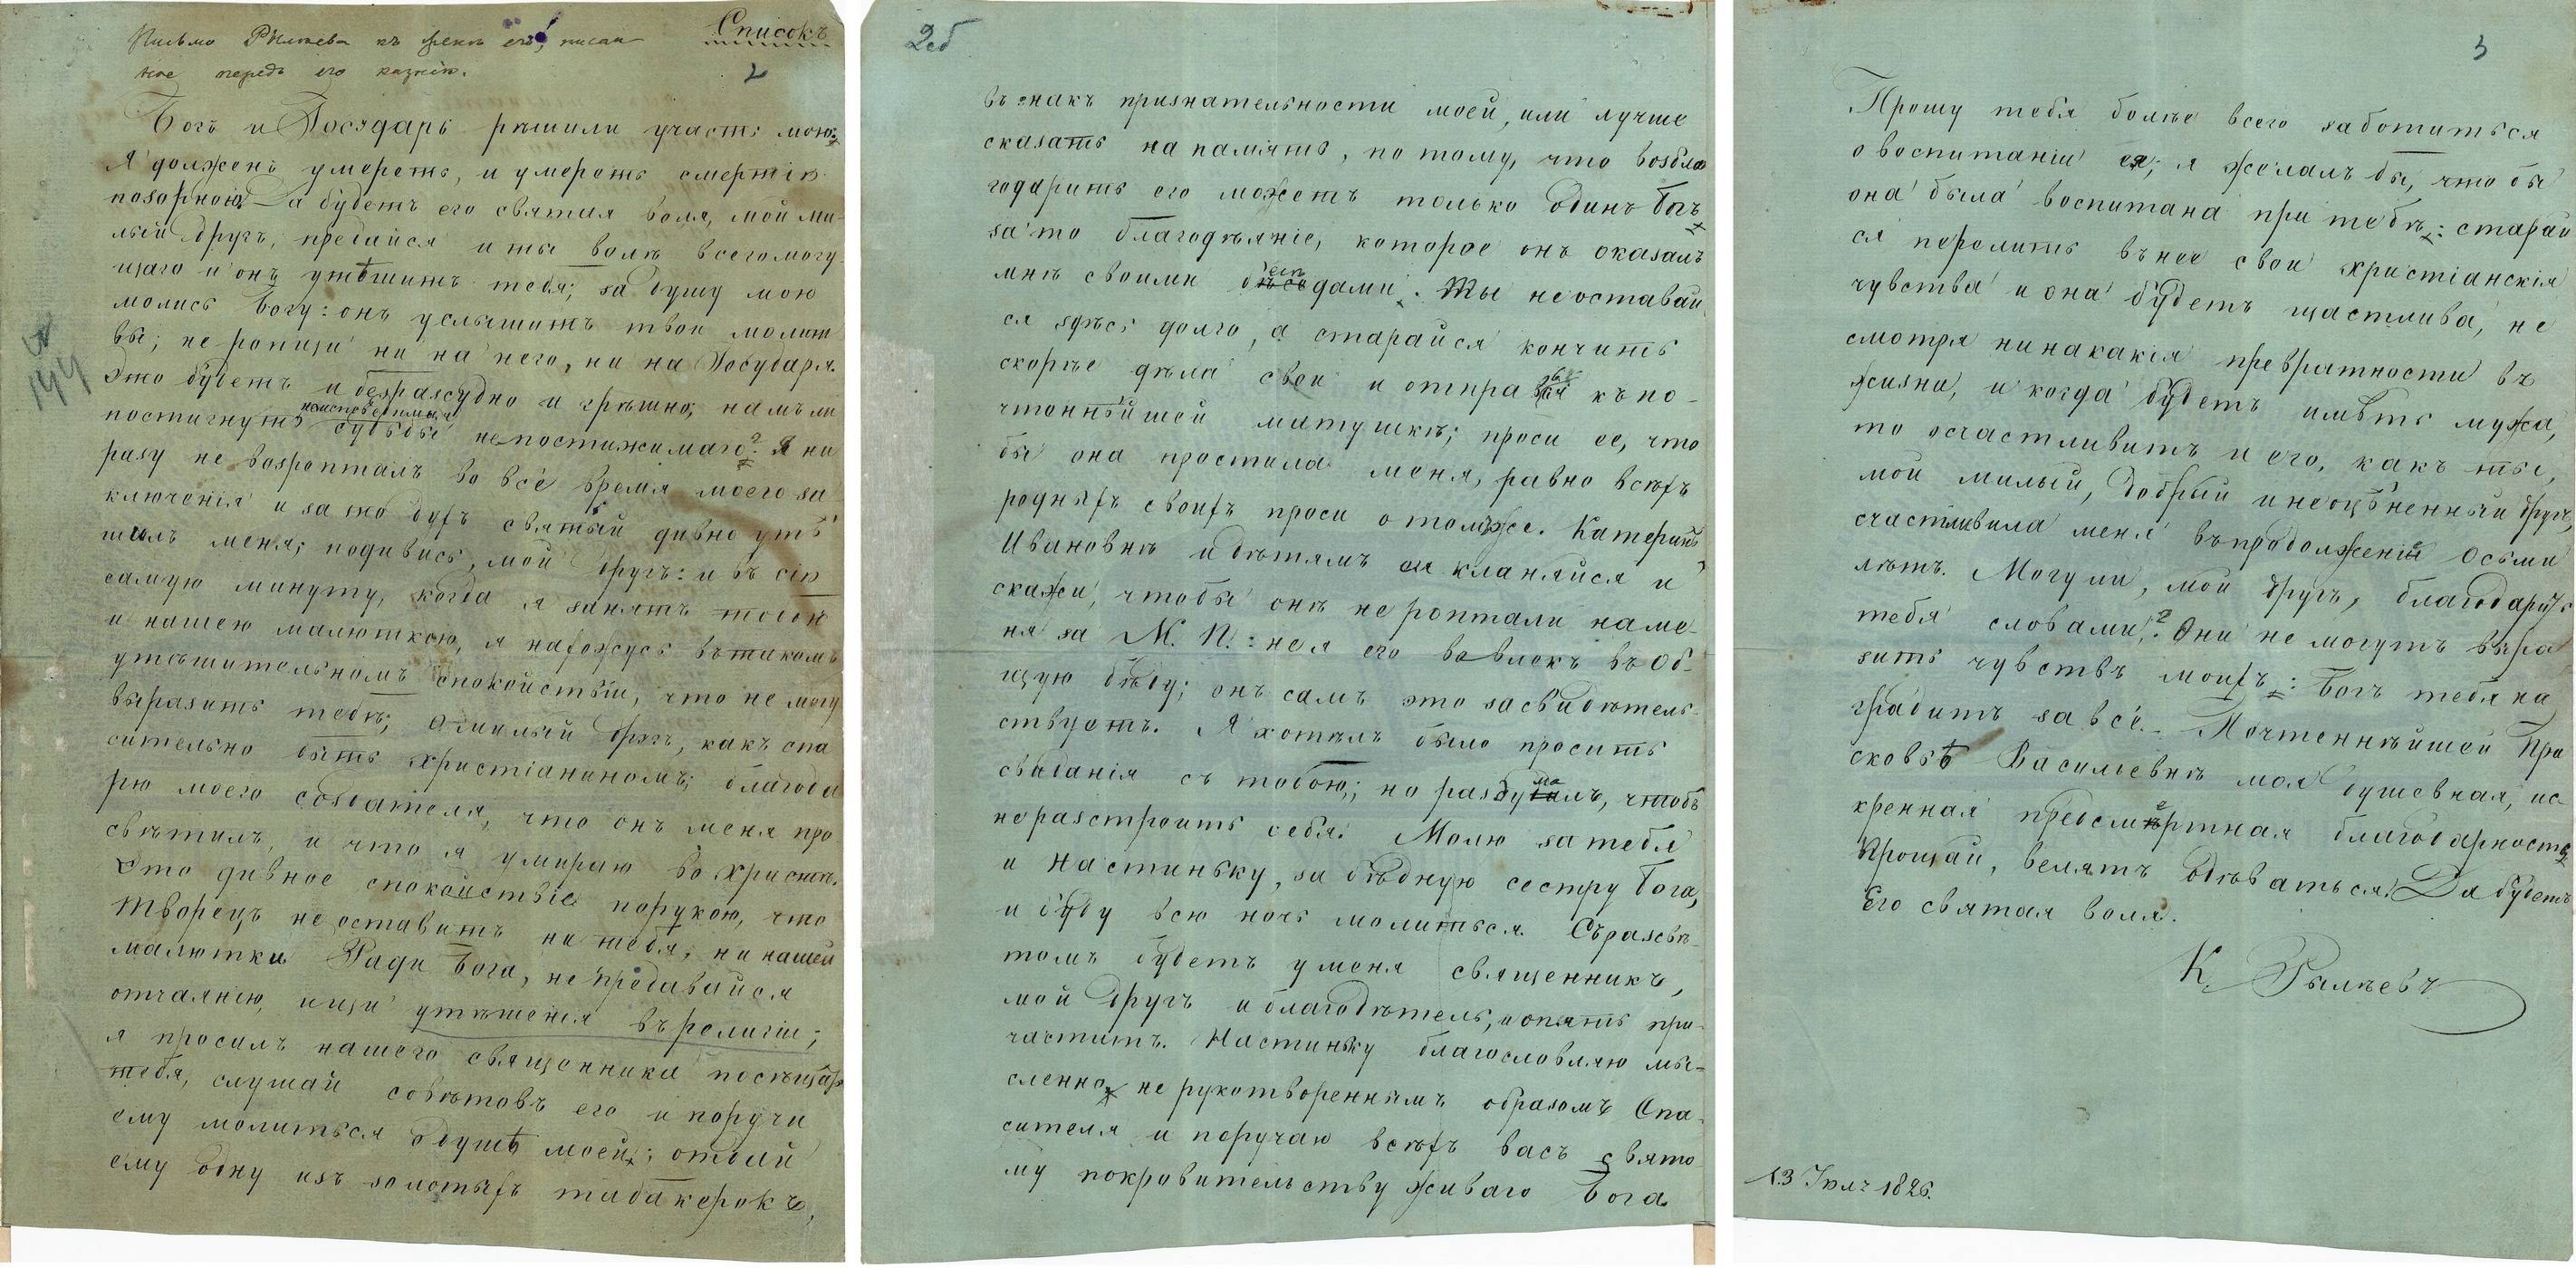 Списокъ
Письмо Рылѣева къ женѣ его, писан
ное передъ его казнію.
2
Богъ и Государь рѣшили участь мою:
я долженъ умереть, и умереть смертію
позорною. Да будетъ его святая воля, мой ми-
лый другъ, предайся и ты волѣ всемогу-
щаго и онъ утѣшитъ тебя; за душу мою
молись Богу: онъ услышитъ твои молит
вы; не ропщи ни на него, ни на Государя.
Это будетъ и безразсудно и грѣшно, намъ ли
постигнуть неисповѣдимыя судьбы непостижимаго? Я ни
разу не возропталъ во всё время моего за
ключенія и за то духъ святый дивно утѣ
шилъ меня; подивись, мой другъ: и въ сію
самую минуту, когда я занятъ тобою
и нашею малюткою, я нахожусь въ такомъ
утѣшительномъ спокойствіи, что не могу
выразить тебѣ; О милый другъ, какъ спа
сительно быть христіаниномъ; благода
рю моего создателя, что онъ меня про
свѣтилъ, и что я умираю во Христѣ.
Это дивное спокойствіе порукою, что
Творецъ не оставитъ ни тебя, ни нашей
малютки Ради Бога, не предавайся
отчаянію, ищи утѣшенія въ религіи;
я просилъ нашего священника посѣщать
тебя, слушай совѣтовъ его и поручи
ему молиться о душѣ моей; отдай
ему одну изъ золотыхъ табакерокъ,
2об
въ знакъ признательности моей, или лучше
сказать на память, по тому, что возбла
годарить его можетъ только одинъ Богъ
за то благодѣяніе, которое онъ оказалъ
мнѣ своими бесѣдами. Ты не оставай
ся здѣсь долго, а старайся кончить
скорѣе дѣла свои и отправься къ по-
чтеннѣйшей матушкѣ; проси ее, что
бы она простила меня, равно всѣхъ
родныхъ своихъ проси о томъ же. Катеринѣ
Ивановнѣ и дѣтямъ ея кланяйся и
скажи, чтобы онѣ не роптали на ме-
ня за М. П.: не я его вовлекъ въ об-
щую бѣду; онъ самъ это засвидѣтель-
ствуетъ. Я хотѣлъ было просить
свиданія съ тобою; но раздумалъ, чтобъ
не разстроить себя. Молю за тебя
и Настиньку, за бѣдную сестру Бога,
и буду всю ночь молиться. Съ разсвѣ-
томъ будетъ у меня священникъ,
мой другъ и благодѣтель, и опять при-
частитъ. Настиньку благословляю мы-
сленно не рукотвореннымъ образомъ Спа-
сителя и поручаю всѣхъ васъ свято
му покровительству живаго Бога.
3
Прошу тебя болѣе всего заботиться
о воспитаніи ея; я желалъ бы, что бы
она была воспитана при тебѣ: старай
ся перелить въ нее свои христіанскія
чувства и она будетъ щастлива, не
смотря ни на какія превратности въ
жизни, и когда будетъ имѣть мужа,
то осчастливитъ и его, какъ ты,
мой милый, добрый и неоцѣненный другъ,
счастливила меня въ продолженіи осьми
лѣтъ. Могу ли, мой другъ, благодарить
тебя словами? Они не могутъ выра
зить чувствъ моихъ: Богъ тебя на
градитъ за всё. Почтеннѣйшей Пра
сковьѣ Васильевнѣ моя душевная, ис-
кренная предсмертная благодарность.
Прощай, велятъ одѣваться. Да будетъ
Его святая воля.
К. Рылѣевъ
13 Іюля 1826.